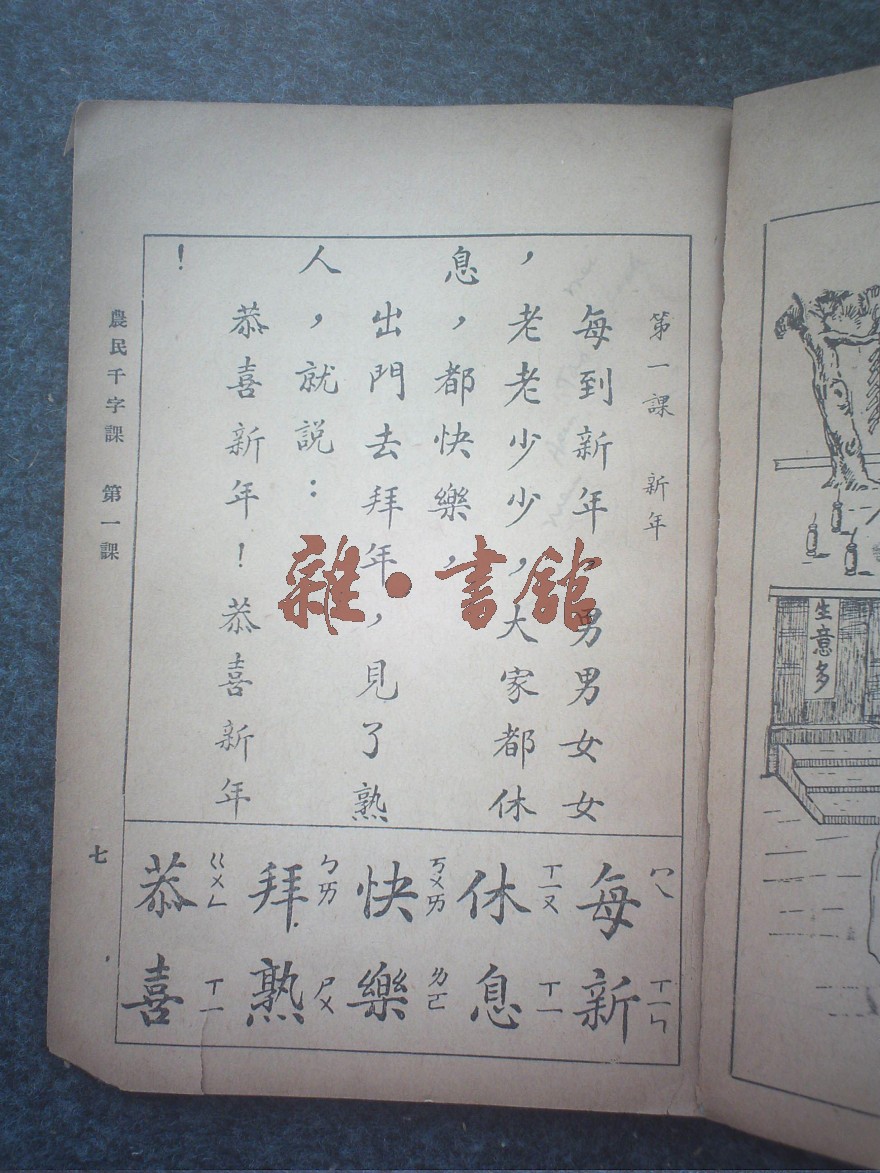 生意多
第一課 新年
每到新年，男男女女
，老老少少，大家都休
息，都快樂，
出門去拜年，見了熟
人，就説：
恭喜新年！恭喜新年
！
ㄇㄟ ㄒㄧㄣ
每新
ㄒㄧㄡ ㄒㄧ
休息
ㄎㄨㄞ ㄌㄛ
快樂
ㄅㄞ ㄕㄨ
拜熟
ㄍㄨㄥ ㄒㄧ
恭喜
農民千字課 第一課
七
雜·書館